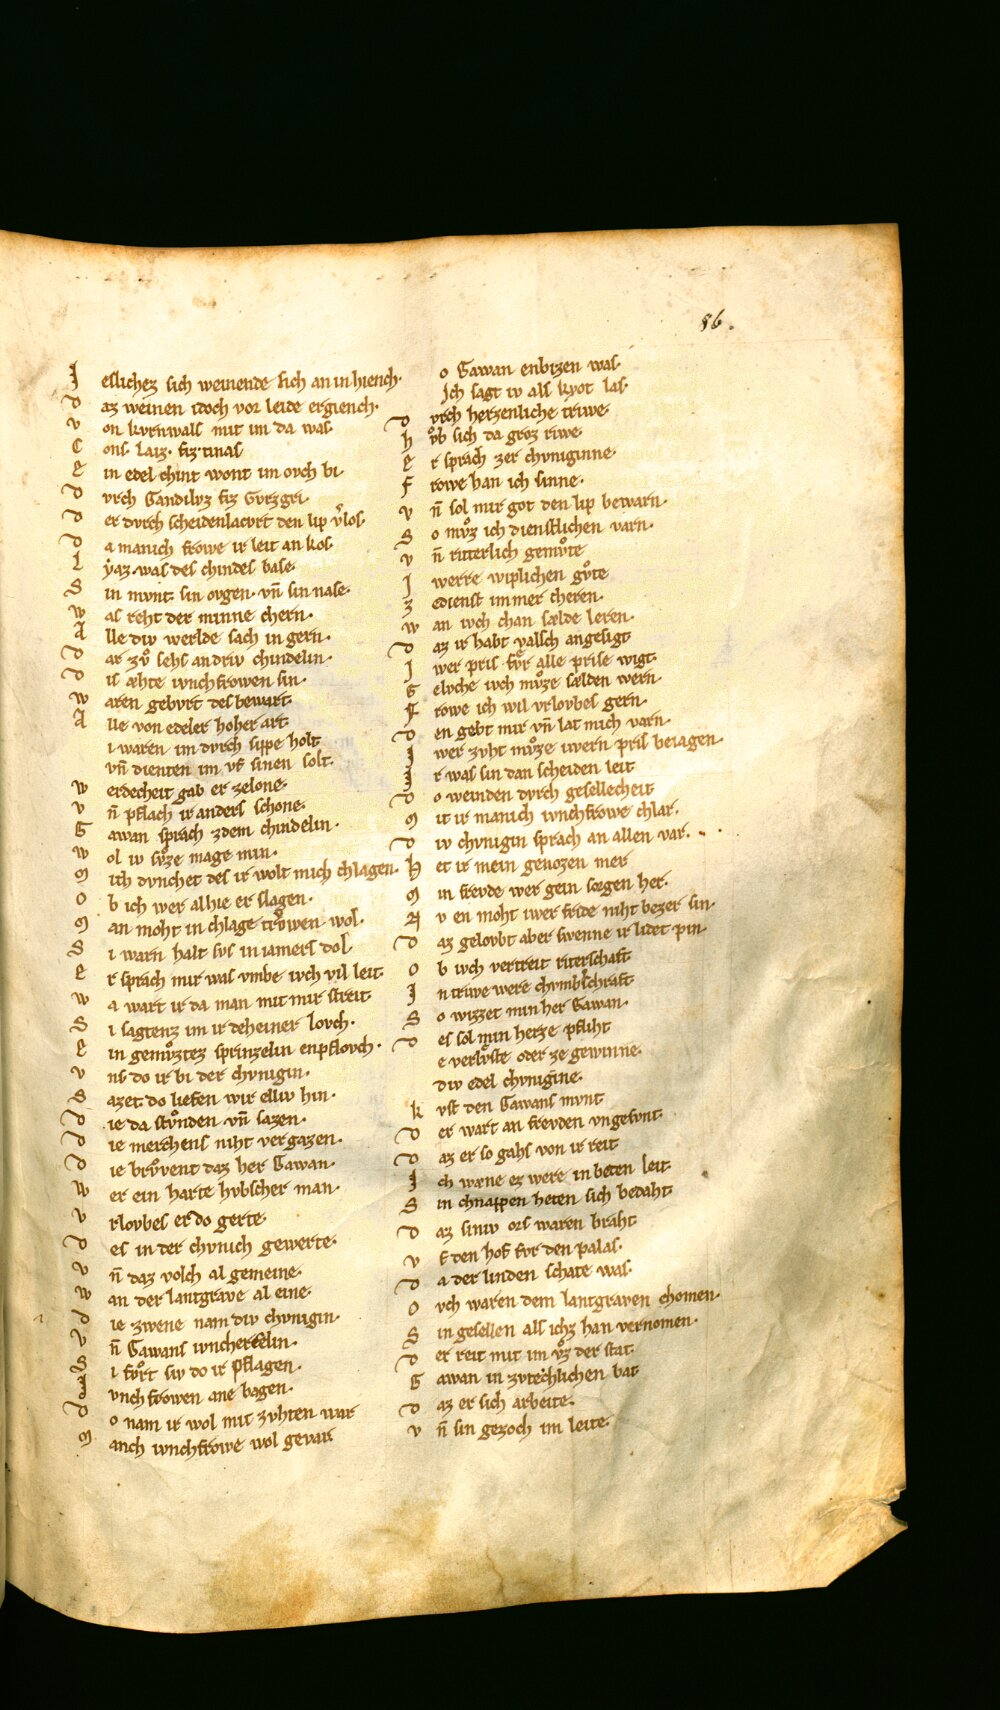 86.
Jeslichez sich weinende sich an in hiench·
Daz weinen idoch vor leide ergiench·
Von kvrnwals mit im da was·
Cons Laiz· fiz·tinas
Ein edel chint wont im ovch bi·
Dvrch Gandilvz fiz Gvrzgri·
Der dvrch scheidenlacvrt den lip v̓los·
Da manich frowe ir leit an kos·
Lẏaz·was des chindes base·
Sin mvnt· sin ovgen· vn̄ sin nase·
Was reht der minne chern·
Alle div werlde sach in gern·
Dar zvͦ sehs andriv chindelin·
Dis æhte ivnchfrowen sin·
Waren gebvrt des bewart·
Alle von edeler hoher art·
i waren im dvrch sippe holt
vn̄ dienten im vf sinen solt·
Werdecheit gab er zelone·
Vn̄ pflach ir anders schone·
Gawan sprach zdem chindelin·
Wol iv svͦze mage min·
Mich dvnchet des ir wolt mich chlagen·
Ob ich wer alhie er slagen·
Man moht in chlage trͦwen wol·
Si warn halt svs in iamers dol
Er sprach mir was vmbe ivch vil leit
Wa wart ir da man mit mir streit·
Si sagtenz im ir deheiner lovch·
Ein gemvͦztez sprinzelin enpflovch·
Vns do ir bi der chvnigin·
Sazet do liefen wir elliv hin·
Die da stvͦnden vn̄ sazen·
Die merchens niht vergazen·
Die brvͦvent daz her Gawan·
Wer ein harte hvbscher man·
Vrlovbes er do gerte·
Des in der chvnich gewerte·
Vn̄ daz volch al gemeine·
Wan der lantgrave al eine·
Die zwene nam div chvnigin·
Vn̄ Gawans ivncherrelin·
Si fvͦrt siv do ir pflagen·
Jvnch frowen ane bagen·
Do nam ir wol mit zvhten war
Manch ivnchfrowe wol gevar
o Gawan enbizen was·
Jch sagt iv als kyot las·
Dvrch herzenliche triwe·
Hvͦb sich da groz riwe·
Er sprach zer chvniginne·
Frowe han ich sinne·
Vn̄ sol mir got den lip bewarn·
So mvͦz ich dienstlichen varn·
Vn̄ ritterlich gemvͦte
Jwerre wiplichen gvͦte
Zedienst immer cheren·
Wan ivch chan sælde leren·
Daz ir habt valsch angesigt
Jwer pris fvͦr alle prise wigt·
Gelvche ivch mvͦze sælden wern·
Frowe ich wil vrlovbes gern·
Den gebt mir vn̄ lat mich varn·
Jwer zvht mvͦze iwern pris beiagen·
Jr was sin dan scheiden leit
Do weinden dvrch gesellecheit
Mit ir manich ivnchfrowe chlar·
Div chvnigin sprach an allen var·
Het ir mein genozen mer
Min frevde wer gein sorgen her·
Nv en moht iwer fride niht bezer sin·
Daz gelovbt aber swenne ir lidet pin·
Ob ivch vertreit riterschaft
Jn triwe were chvmbᷤchraft
So wizzet min her Gawan·
Des sol min herze pfliht
e verlvͦste oder ze gewinne·
div edel chvnigine·
Kvst den Gawans mvnt
Der wart an frevden vngesvnt·
Daz er so gahs von ir reit
Jch wæne ez were in beten leit·
Sin chnappen heten sich bedaht·
Daz siniv ors waren braht
Vf den hof fvr den palas·
Da der linden schate was·
Ovch waren dem lantgraven chomen·
Sin gesellen als ichz han vernomen·
Der reit mit im vͦz der stat·
Gawan in zvtechlichen bat
Daz er sich arbeite·
Vn̄ sin gezoch im leite·